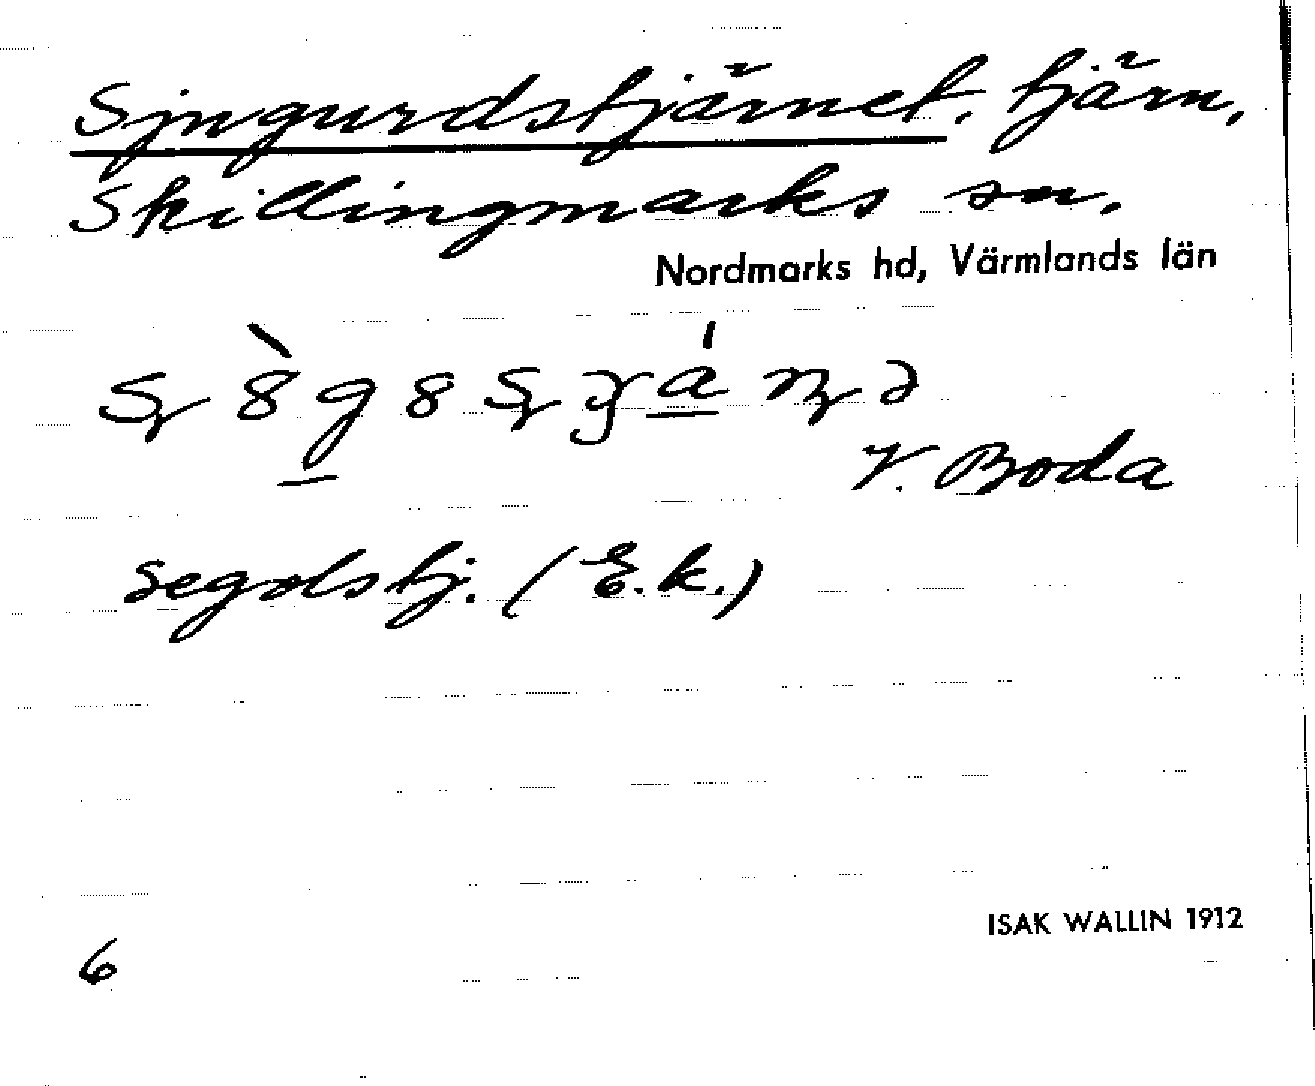 Sjngurdstjärnet, tjärn,
Skillingmarks sn.
Nordmarks hd, Värmlands län
V. Boda
segolstj. (E.k.)
ISAK WALLIN 1912
6